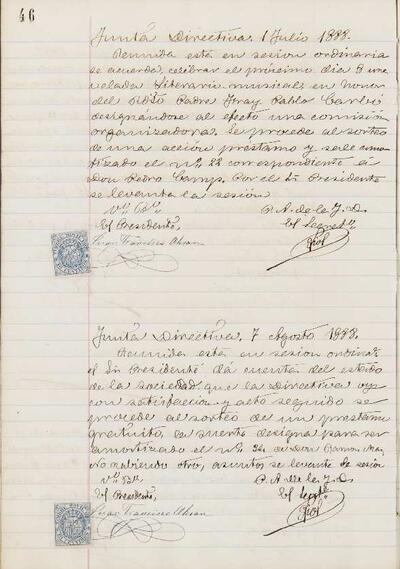 46
Junta Directiva. 1 Julio 1888.
Reunida está en sesion ordinaria
se acuerda, celebrar el próximo dia 8 una
velada Literaria musical, en honor
del Rdo Padre Fray Pablo Carbó
designándose al efecto una comisión
organizadora. Se procede al sorteo
de una acción préstamo y sale amor
tizado el nº 22 correspondiente á
Don Pedro Camp. Por el Sr Presidente
se levanta la sesión.
Vº Bº P. A. de la J. D.
El Presidente, El Secretº
Francisco
Junta Directiva. 7 Agosto 1888.
Reunida está en sesion ordinaª
el Sr Presidente dá cuenta del estado
de la sociedad, que la Directiva oye
con satisfacción y acto seguido se
procede al sorteo de un préstamo
gratuito, la suerte designa para ser
amortizado el nº de Don Ramon
No habiendo otros asuntos se levanta la sesión
Vº Bº P. A. de la J. D.
El Presidente, El Secretº
Francisco